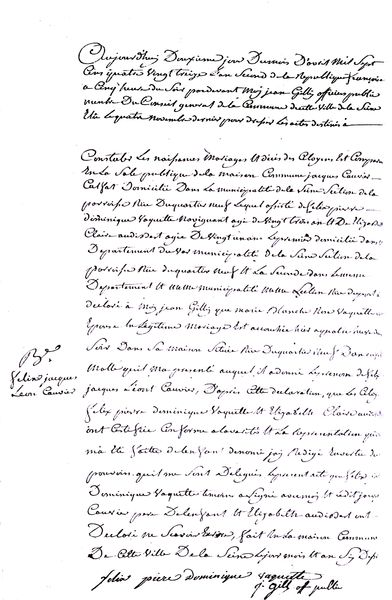 Aujourd'huy Douxième jour Du mois D'avril Mil Sept
Cens quatre vingt treize L'an Second de la Republique françoise
a Cinq heures du Soir pardevant Moy jean Gilly officier public
membre Du Conseil general de la Commune de cette Ville de la Seine
Elu le quatre novembre dernier pour dresser les actes destinés à
Constater Les naissances Mariages et décès des Citoyens Est Comparu
En La Sale publique de la maison Commune jacques Cauvier
Domicilié Dans La municipalité de la Seine Section de la
parroisse Rue Duquartier neuf Lequel assisté de felix pierre
dominique Vaquette Navigeant agé de Vingt trois an Et De Elizabeth
Claire audibert agée De Vingt un ans Le premier domicilié dans
Departement du Var municipalité de la Seine Section de la
parroisse Rue du quartier neuf Et La Seconde dans Le meme
Departement Et meme municipalité meme Section Rue
declaré à Moy jean Gilly que marie Blanche Rose Vaquette
Epouse En Legitime Mariage Est accouchée hier
Soir Dans Sa maison Située Rue Duquartier neuf D'un enfant
Malle qu'il Ma presenté auquel il a donné Les prenoms de felix
jacques Léon Cauvier, D'après Cette declaration, que Les Citoyens
felix pierre dominique Vaquette Et Elizabeth Claire audibert
ont Certifiée Conforme a la verité Et La Representation qui
m'a Eté faitte de l'enfant denommé j'ay Redigé En vertu des
pouvoirs qui me Sont Delegués Le present acte que felix pierre
Dominique Vaquette temoin a Signé avec moy Et ledit jacques
Cauvier pere De l'enfant Et Elizabeth audibert ont
Declaré ne Scavoir Ecrire, fait En La maison Commune
De Cette Ville De la Seine Les jour mois Et an Sus Dits
felix pierre dominique vaquette
j. Gilly off. public
Felix jacques
Léon Cauvier